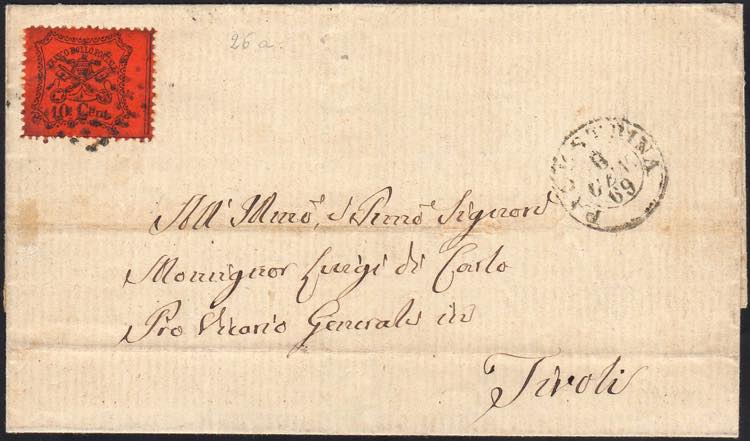 26 a.
FRANCO BOLLO POSTALE
10 Cent
PALESTRINA
6
GEN
69
All' Illmo, e Rmo Signore
Monsignor Luigi di Carlo
Pro Vicario Generale in
Tivoli